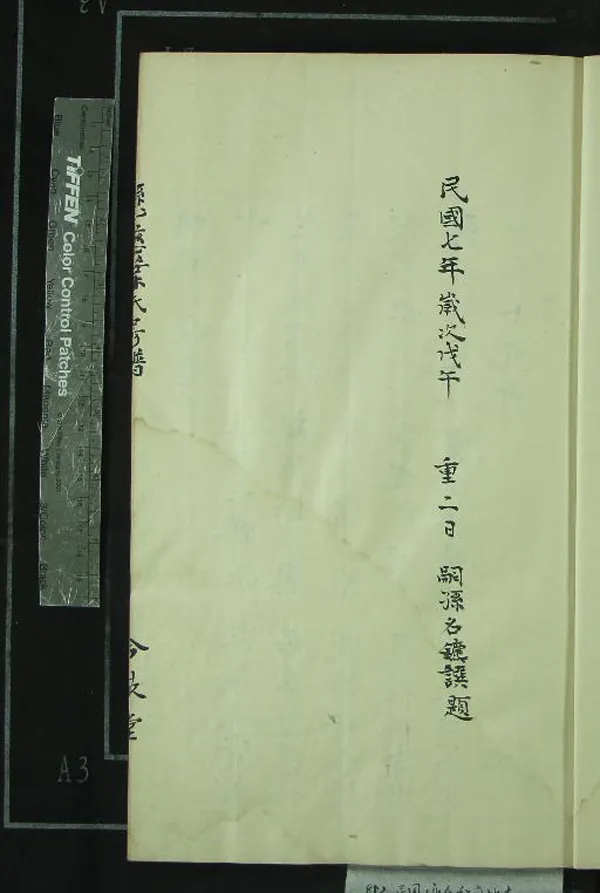 民國七年歲次戊午 重二日 嗣孫名鑣譔題
氏房譜
堂
TIFFEN Color Control Patches
Centimetres
Blue
Cyan
Green
Yellow
Red
Magenta
White
3/Color
Black
A3